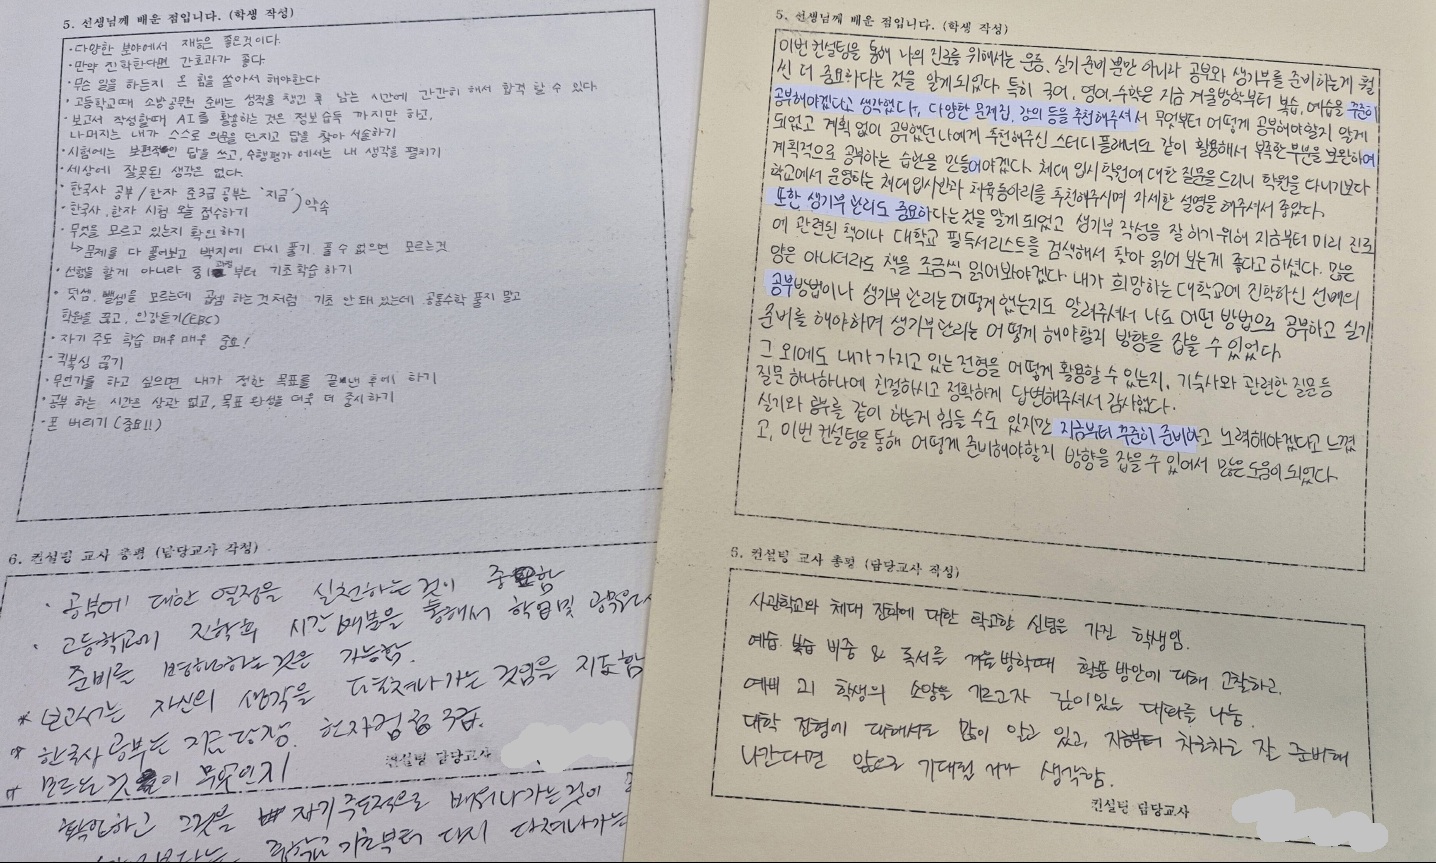 5. 선생님께 배운 점입니다. (학생 작성)
· 다양한 분야에서 재능은 좋은것이다.
· 만약 진학한다면 간호과가 좋다
· 무슨 일을 하든지 온 힘을 쏟아서 해야한다
· 고등학교때 소방공무원 준비는 성적을 챙긴 후 남는 시간에 간간히 해서 합격 할 수 있다
· 보고서 작성할때 AI를 활용하는 것은 정보습득 까지만 하고,
나머지는 내가 스스로 의문을 던지고 답을 찾아 서술하기
· 시험에는 보편적인 답을 쓰고, 수행평가에서는 내 생각을 펼치기
· 세상에 잘못된 생각은 없다.
· 한국사 공부 / 한자 준3급 공부는 '지금'
· 한국사, 한자 시험 오늘 접수하기 ) 약속
· 무엇을 모르고 있는지 확인하기
↳ 문제를 다 풀어보고 백지에 다시 풀기. 풀 수 없으면 모르는것
· 선행을 할게 아니라 중1 과정부터 기초학습 하기
· 덧셈, 뺄셈을 모르는데 곱셈 하는것처럼 기초 안돼 있는데 공통수학 풀지 말고
학원을 끊고, 인강듣기(EBC)
· 자기 주도 학습 매우매우 중요!
· 퀵보싱 끊기
· 무언가를 하고 싶으면 내가 정한 목표를 끝낸 후에 하기
· 공부 하는 시간은 상관 없고, 목표 완성을 더욱 더 중시하기
· 폰 버리기 (중요!!)
6. 컨설팅 교사 총평 (담당교사 작성)
· 공부에 대한 열정을 실천하는 것이 중요함
· 고등학교에 진학후 시간 배분을 통해서 학업 및 공무원
준비를 병행하는 것은 가능함.
* 보고서는 자신의 생각을 펼쳐나가는 것임을 지도함
* 한국사 공부는 지금 당장. 한자검정 3급.
* 모르는 것이 무엇인지
컨설팅 담당교사
확인하고 그것을 자기주도적으로 배워나가는것이
중학교 기초부터 다시 다져나가는
5. 선생님께 배운 점입니다. (학생 작성)
이번 컨설팅을 통해 나의 진로를 위해서는 운동, 실기 준비 뿐만 아니라 공부와 생기부를 준비하는게 훨
씬 더 중요하다는 것을 알게되었다. 특히 국어, 영어, 수학은 지금 겨울방학부터 복습, 예습을 꾸준히
공부해야겠다고 생각했다. 다양한 문제집, 강의 등을 추천해주셔서 무엇부터 어떻게 공부해야할지 알게
되었고 계획 없이 공부했던 나에게 추천해주신 스터디 플래너도 같이 활용해서 부족한 부분을 보완하여
계획적으로 공부하는 습관을 만들어야겠다. 체대 입시 학원에 대한 질문을 드리니 학원을 다니기보다
학교에서 운영하는 체대입시반과 체육동아리를 추천해주시며 자세한 설명을 해주셔서 좋았다.
또한 생기부 관리도 중요하다는 것을 알게 되었고 생기부 작성을 잘 하기 위해 지금부터 미리 진로
에 관련된 책이나 대학교 필독서리스트를 검색해서 찾아 읽어 보는게 좋다고 하셨다. 많은
양은 아니더라도 책을 조금씩 읽어봐야겠다. 내가 희망하는 대학교에 진학하신 선배의
공부방법이나 생기부 관리는 어떻게 했는지도 알려주셔서 나도 어떤 방법으로 공부하고 실기
준비를 해야하며 생기부 관리는 어떻게 해야할지 방향을 잡을 수 있었다.
그 외에도 내가 가지고 있는 전형을 어떻게 활용할 수 있는지, 기숙사와 관련한 질문등
질문 하나하나에 친절하시고 정확하게 답변해주셔서 감사했다.
실기와 공부를 같이 하는게 힘들 수도 있지만 지금부터 꾸준히 준비하고 노력해야겠다고 느꼈
고, 이번 컨설팅을 통해 어떻게 준비해야할지 방향을 잡을 수 있어서 많은 도움이 되었다.
5. 컨설팅 교사 총평 (담당교사 작성)
사관학교와 체대 진학에 대한 확고한 신념을 가진 학생임.
예습 복습 비중 & 독서를 겨울방학때 활용 방안에 대해 고찰하고.
예비 고1 학생의 소양을 기르고자 깊이있는 대화를 나눔.
대학 전형에 대해서도 많이 알고 있고, 지금부터 차근차근 잘 준비해
나간다면 앞으로 기대될 거라 생각함.
컨설팅 담당교사